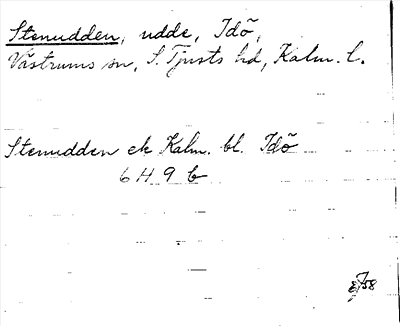 Stenudden, udde, Idö,
Västrums sn, S. Tjusts hd, Kalm. l.
Stenudden ek Kalm. bl. Idö
6 H 9 b